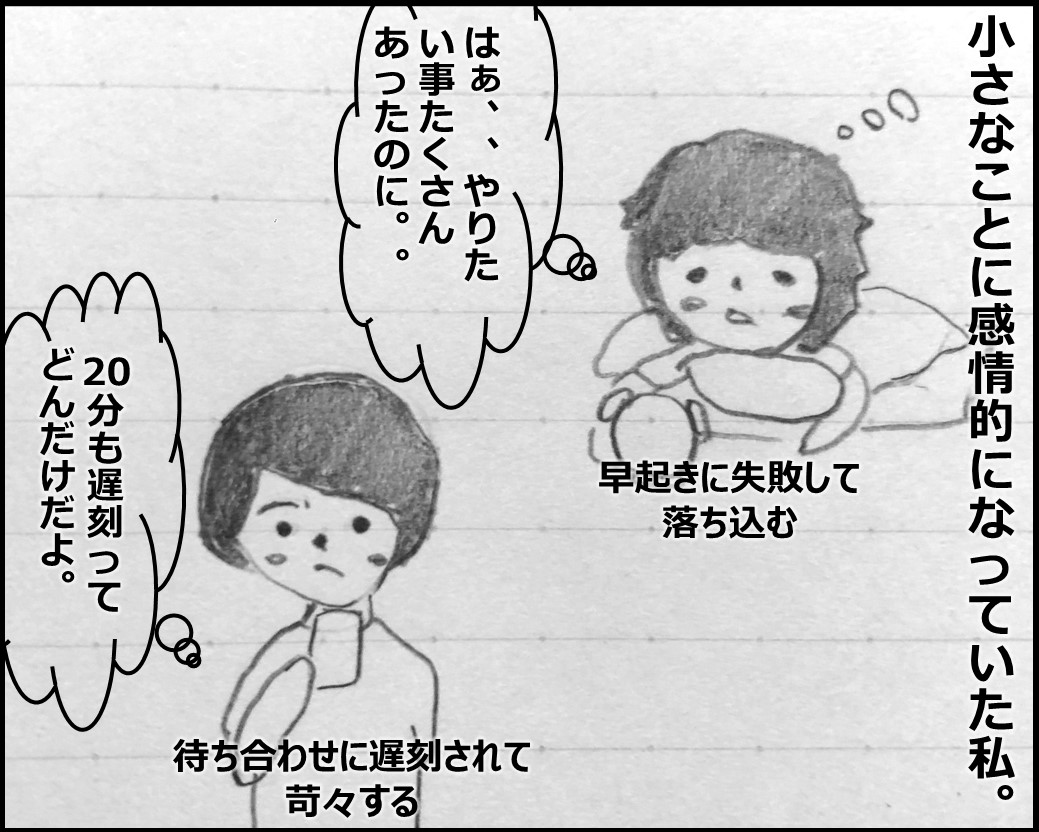 小さなことに感情的になっていた私。
はぁ、、やりた
い事たくさん
あったのに。。
早起きに失敗して
落ち込む
20分も遅刻って
どんだけだよ。
待ち合わせに遅刻されて
苛々する